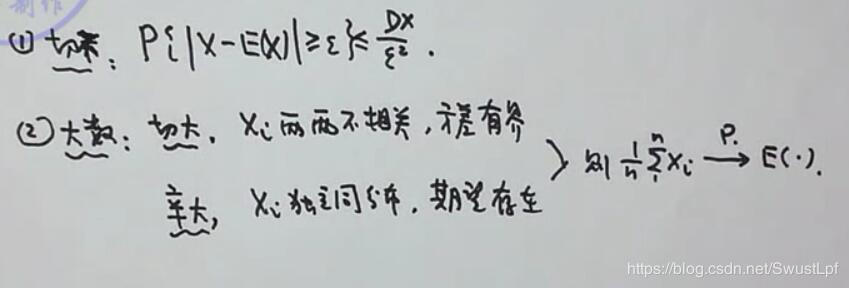 制作
① 切米: P{|X-E(X)|≥ε}≤DX/ε².
② 大数: 切大, Xi 两两不相关, 方差有界
辛大, Xi 独立同分布, 期望存在
} 则 1/n ∑₁ⁿ Xi —P→ E(·).
https://blog.csdn.net/SwustLpf